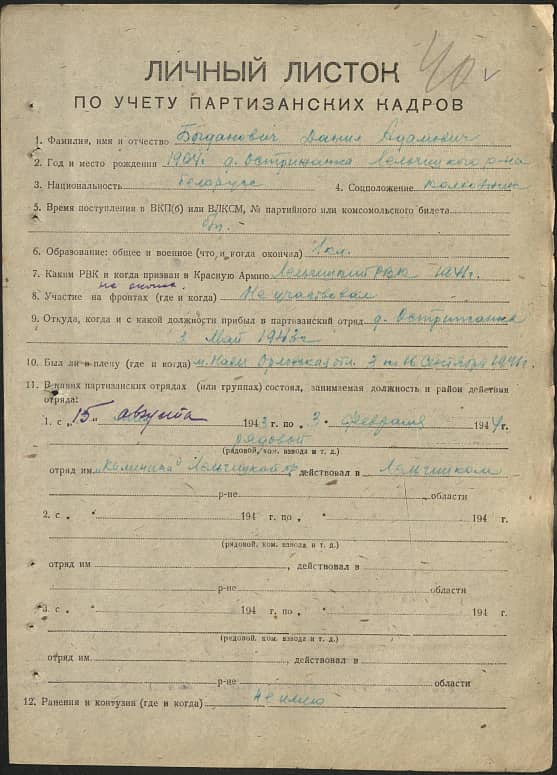 40
ЛИЧНЫЙ ЛИСТОК
ПО УЧЕТУ ПАРТИЗАНСКИХ КАДРОВ
1. Фамилия, имя и отчество Богданович Данил Адамович
2. Год и место рождения 1904г д. Острижанка Лельчицкого р-на
3. Национальность беларусс 4. Соцположение колхозник
5. Время поступления в ВКП(б) или ВЛКСМ, № партийного или комсомольского билета
б/п.
6. Образование: общее и военное (что и когда окончил) 1 кл.
7. Каким РВК и когда призван в Красную Армию Лельчицкий РВК 1941г.
8. Участие на фронтах (где и когда) Не участвовал
9. Откуда, когда и с какой должности прибыл в партизанский отряд д. Острижанка
Май 1943г
10. Был ли в плену (где и когда) Орловская 16 сентября 1941г.
11. В каких партизанских отрядах (или группах) состоял, занимаемая должность и район действия
отряда:
1. с „15„ августа 1943 г. по „3„ февраля 1944г.
рядовой
(рядовой, ком. взвода и т. д.)
отряд им. „Калинина" Лельчицкой бр действовал в Лельчицком
р-не области
2. с „ „ 194 г. по „ „ 194 г.
(рядовой, ком. взвода и т. д.)
отряд им , действовал в
р-не области
3. с „ „ 194 г. по „ „ 194 г.
(рядовой, ком. взвода и т. д.)
отряд им. , действовал в
р-не области
12. Ранения и контузии (где и когда) не имею